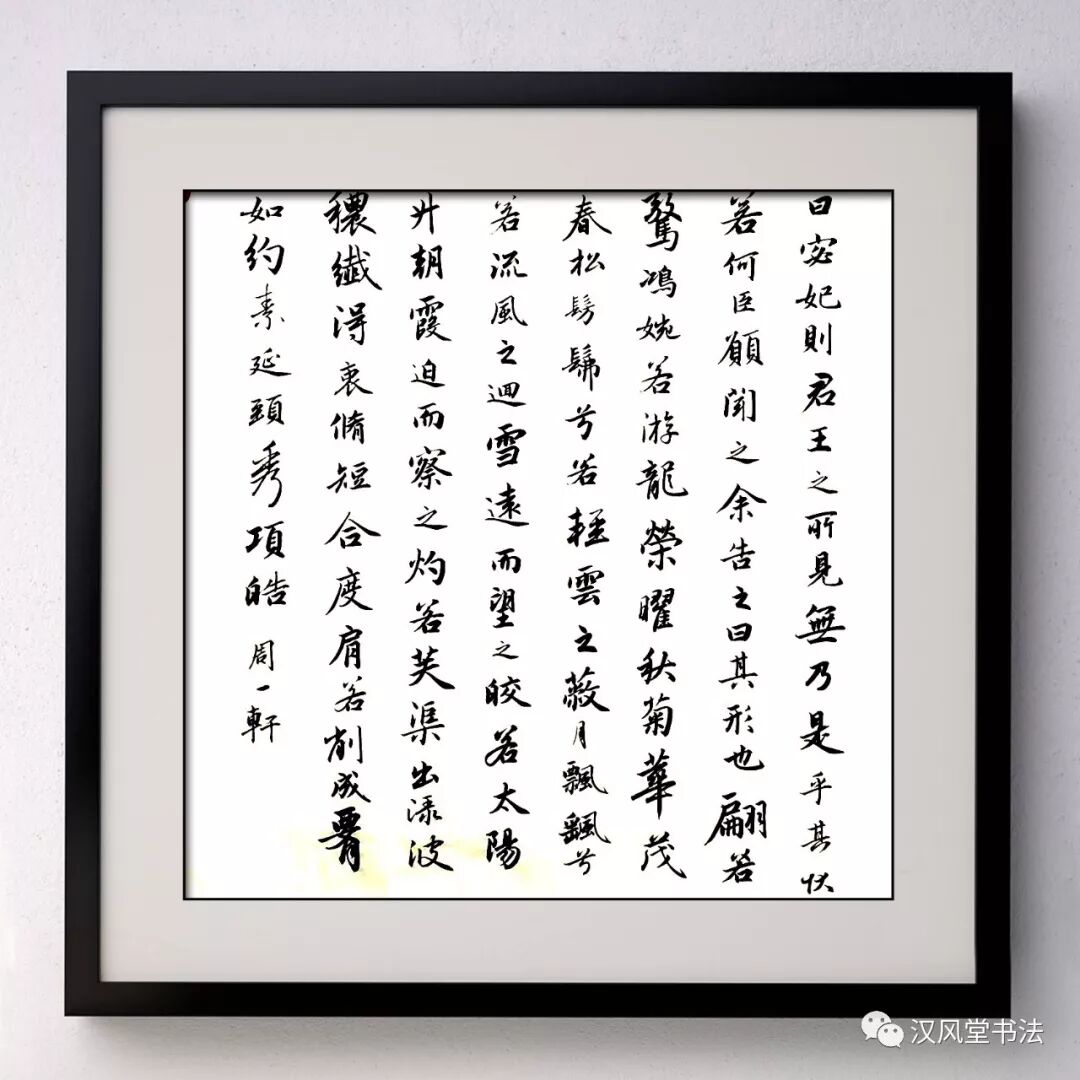 曰宓妃則君王之所見無乃是乎其狀
若何臣願聞之余告之曰其形也翩若
驚鴻婉若游龍榮曜秋菊華茂
春松髣髴兮若輕雲之蔽月飄飖兮
若流風之迴雪遠而望之皎若太陽
升朝霞迫而察之灼若芙渠出淥波
穠纖得衷脩短合度肩若削成署
如約素延頸秀項皓
周一軒
汉风堂书法